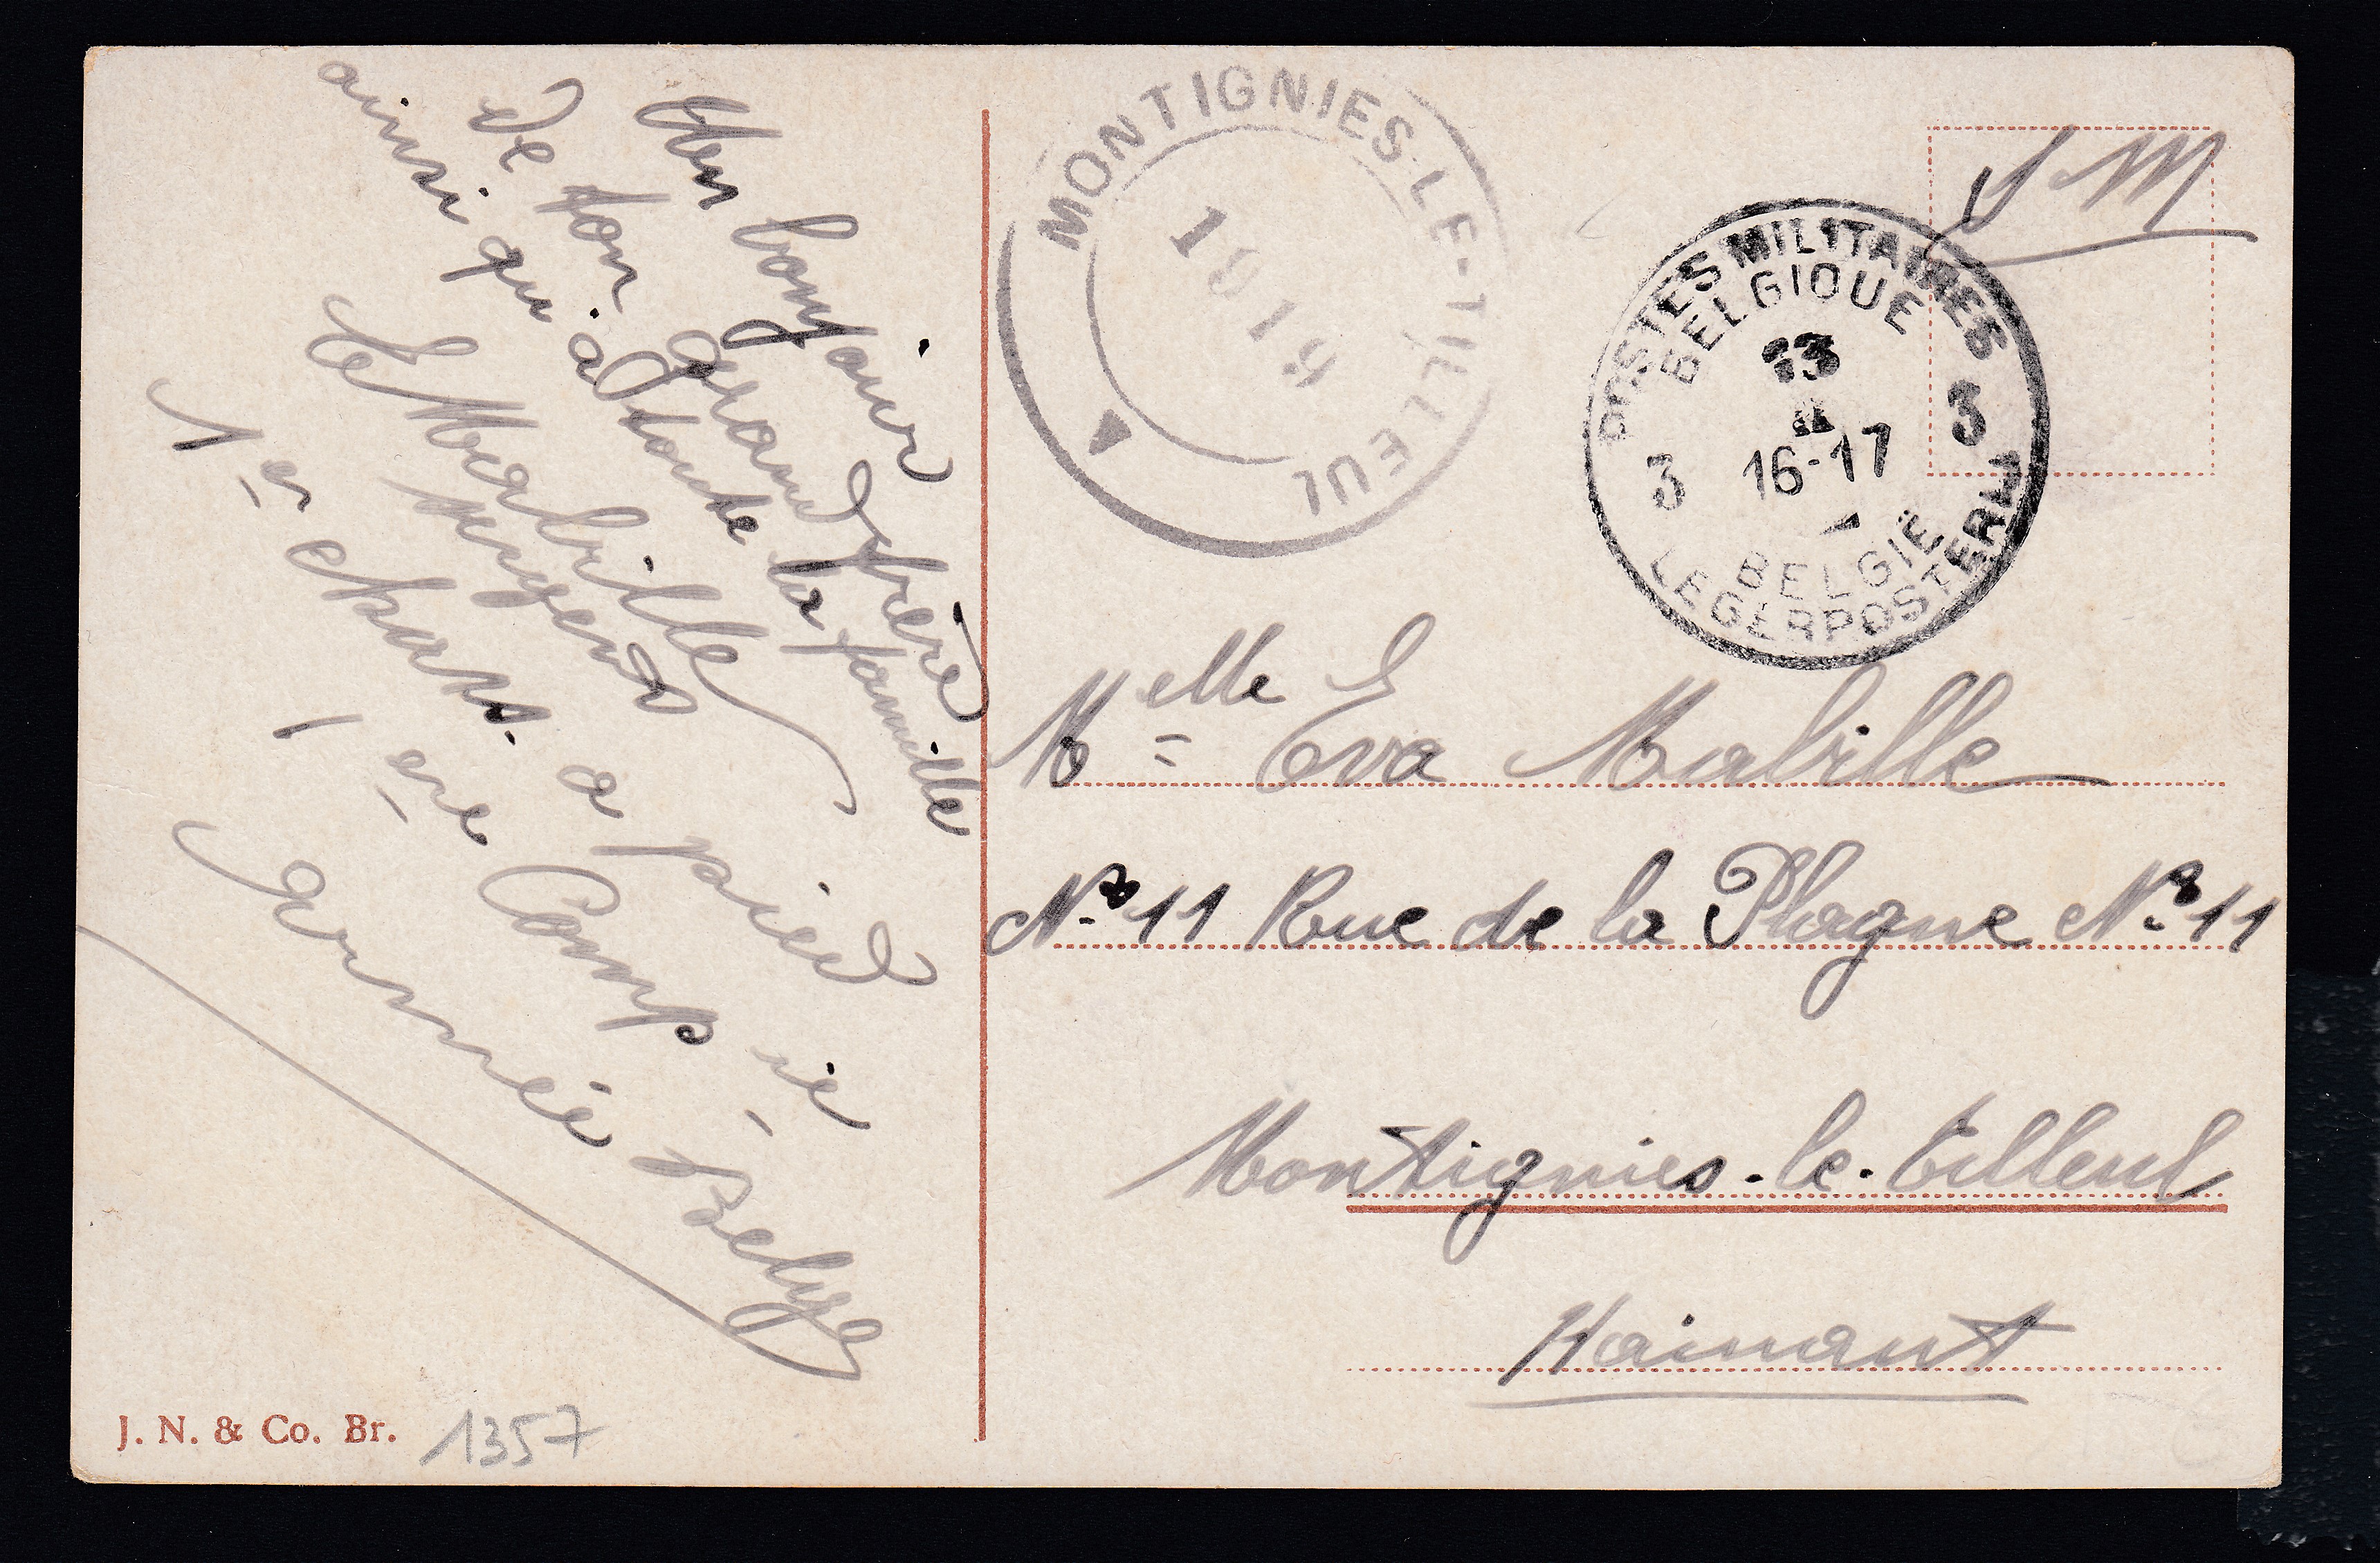 Mon bonjour
de ton grand frère
ainsi qu'à toute la famille
E Mabille
1er chass. a pied
1 ère Comp ie
Armée Belge
J. N. & Co. Br.
1357
MONTIGNIES-LE-TILLEUL
1919
S M
POSTES MILITAIRES
BELGIQUE
13
II
16-17
3 3
BELGIË
LEGERPOSTERIJ
Melle Eva Mabille
No 11 Rue de la Plagne No 11
Montignies-le-Tilleul
Hainaut